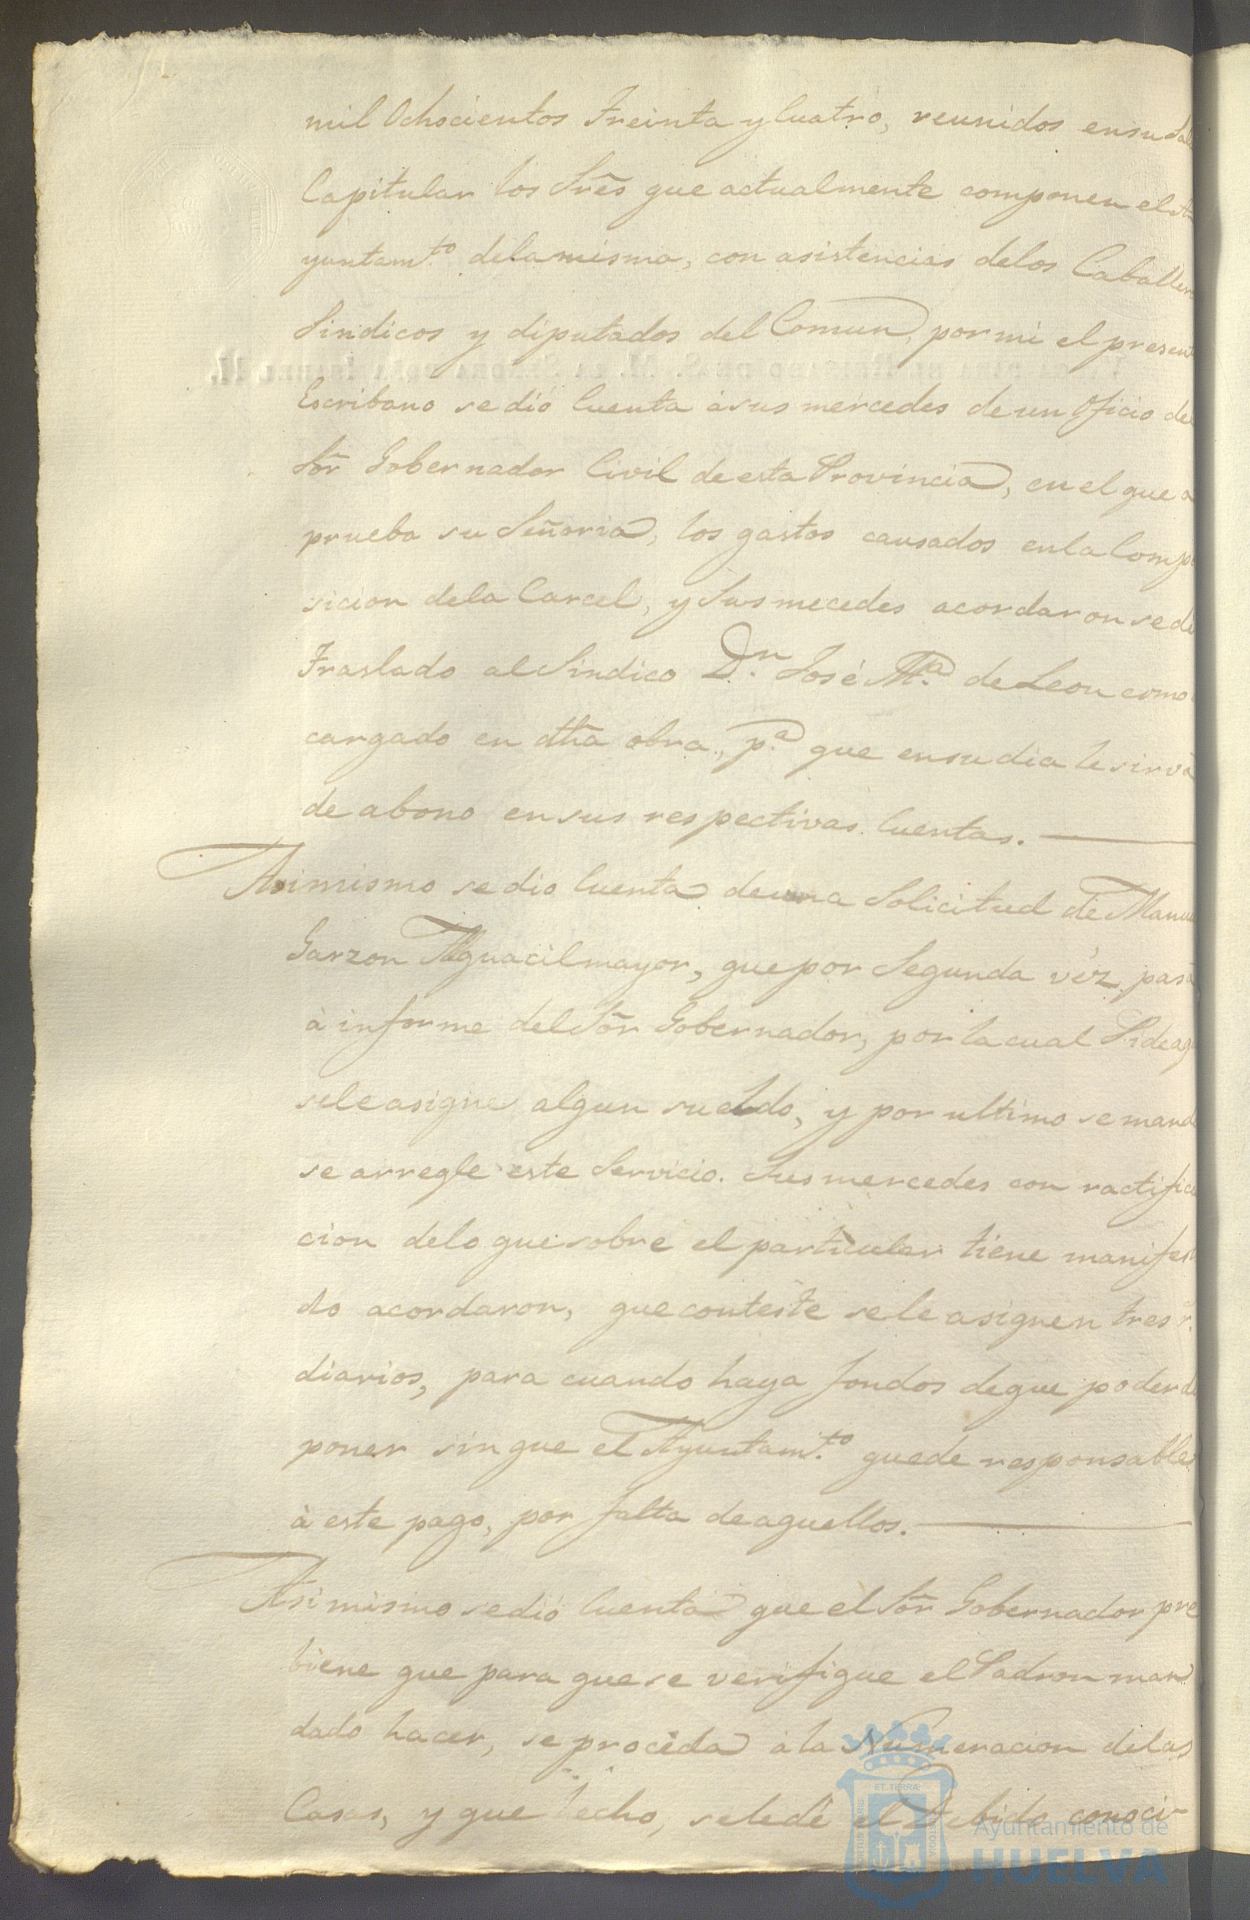 mil Ochocientos Treinta y Cuatro, reunidos en su Sala
Capitular los Sres que actualmente componen el A
yuntam.to de la misma, con asistencias de los Caballero
Sindicos y diputados del Comun, por mi el present
Escribano se dió Cuenta à sus mercedes de un Oficio del
Sōr Gobernador Civil de esta Provincia, en el que a
prueba su Señoria, los gastos causados en la Compo
sicion de la Carcel, y Sus mecedes acordaron se dé
Traslado al Sindico Dn. José Ma. de Leon como
cargado en dha obra, p.a que en su dia le sirva
de abono en sus respectivas Cuentas.
Asimismo se dio Cuenta de una Solicitud de Manuel
Garzon Alguacil mayor, que por Segunda véz pasa
à informe del Sōr Gobernador, por la cual Pide
se le asigne algun sueldo, y por ultimo se manda
se arregle este Servicio. Sus mercedes con ractifica
cion de lo que sobre el particular tiene manifes
do acordaron, que conteste se le asignen tres r.
diarios, para cuando haya fondos de que poder dis
poner sin que el Ayuntam.to quede responsable
à este pago, por falta de aquellos.
Asimismo se dió Cuenta que el Sōr Gobernador pre
biene que para que se verifique el Padron man
dado hacer, se procéda a la Numeracion de las
Casas, y que hecho, se le dé el Debido conoci-
VALGA PARA EL REINADO DE S. M. LA SEÑORA DOÑA ISABEL II.
Ayuntamiento de
HUELVA